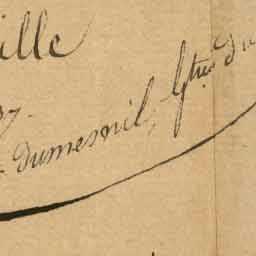 ille
Dumesnil, Gtres du